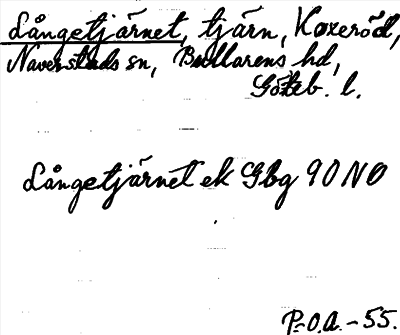 Långetjärnet, tjärn, Koxeröd,
Naverstads sn, Bullarens hd,
Göteb. l.
Långetjärnet ek Gbg 90 NO
P-O.A.-55.